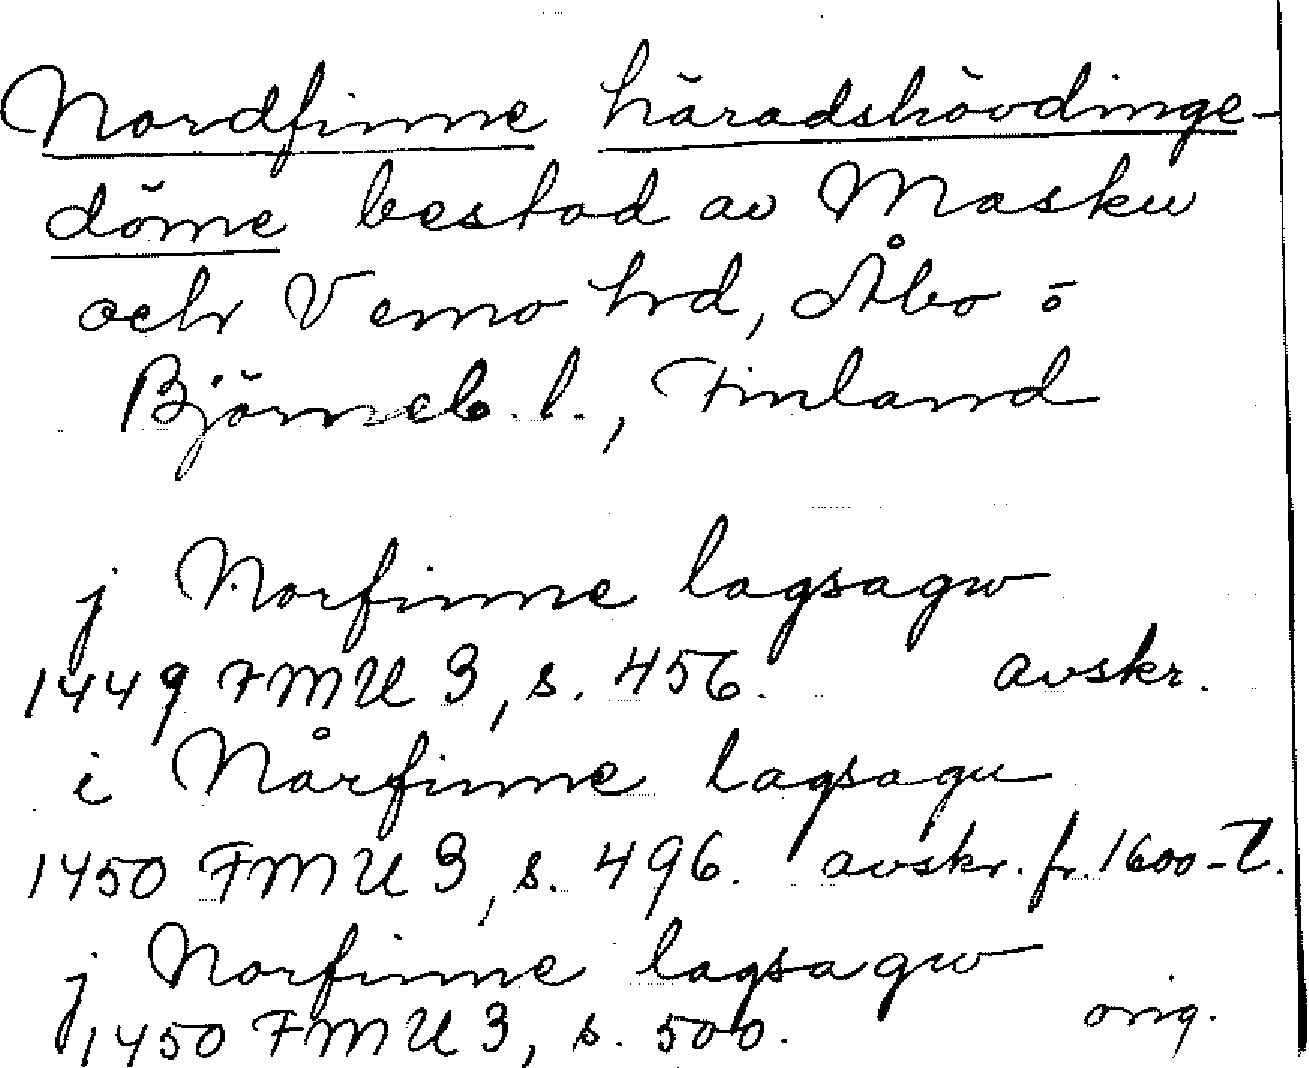 Nordfinne häradshövdinge-
döme bestod av Masku
och Vemo hrd, Åbo o
Björneb. l., Finland
j Norfinne lagsagw
1449 FMU 3, s. 456. avskr.
i Nårfinne lagsagu
1450 FMU 3, s. 496. avskr. fr. 1600-t.
j Norfinne lagsagw
1450 FMU 3, s. 500. orig.